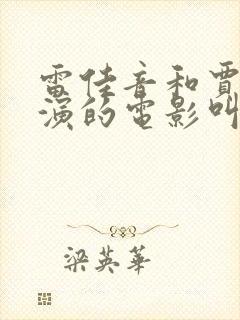 雷佳音和賈
演的電影叫
梁英華